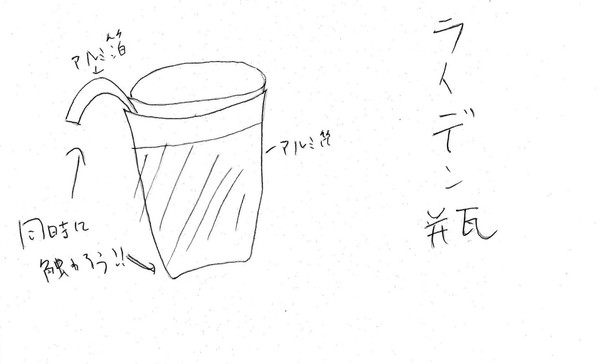 ライデン瓶
アルミ箔
アルミ
同時に
触わろう!!